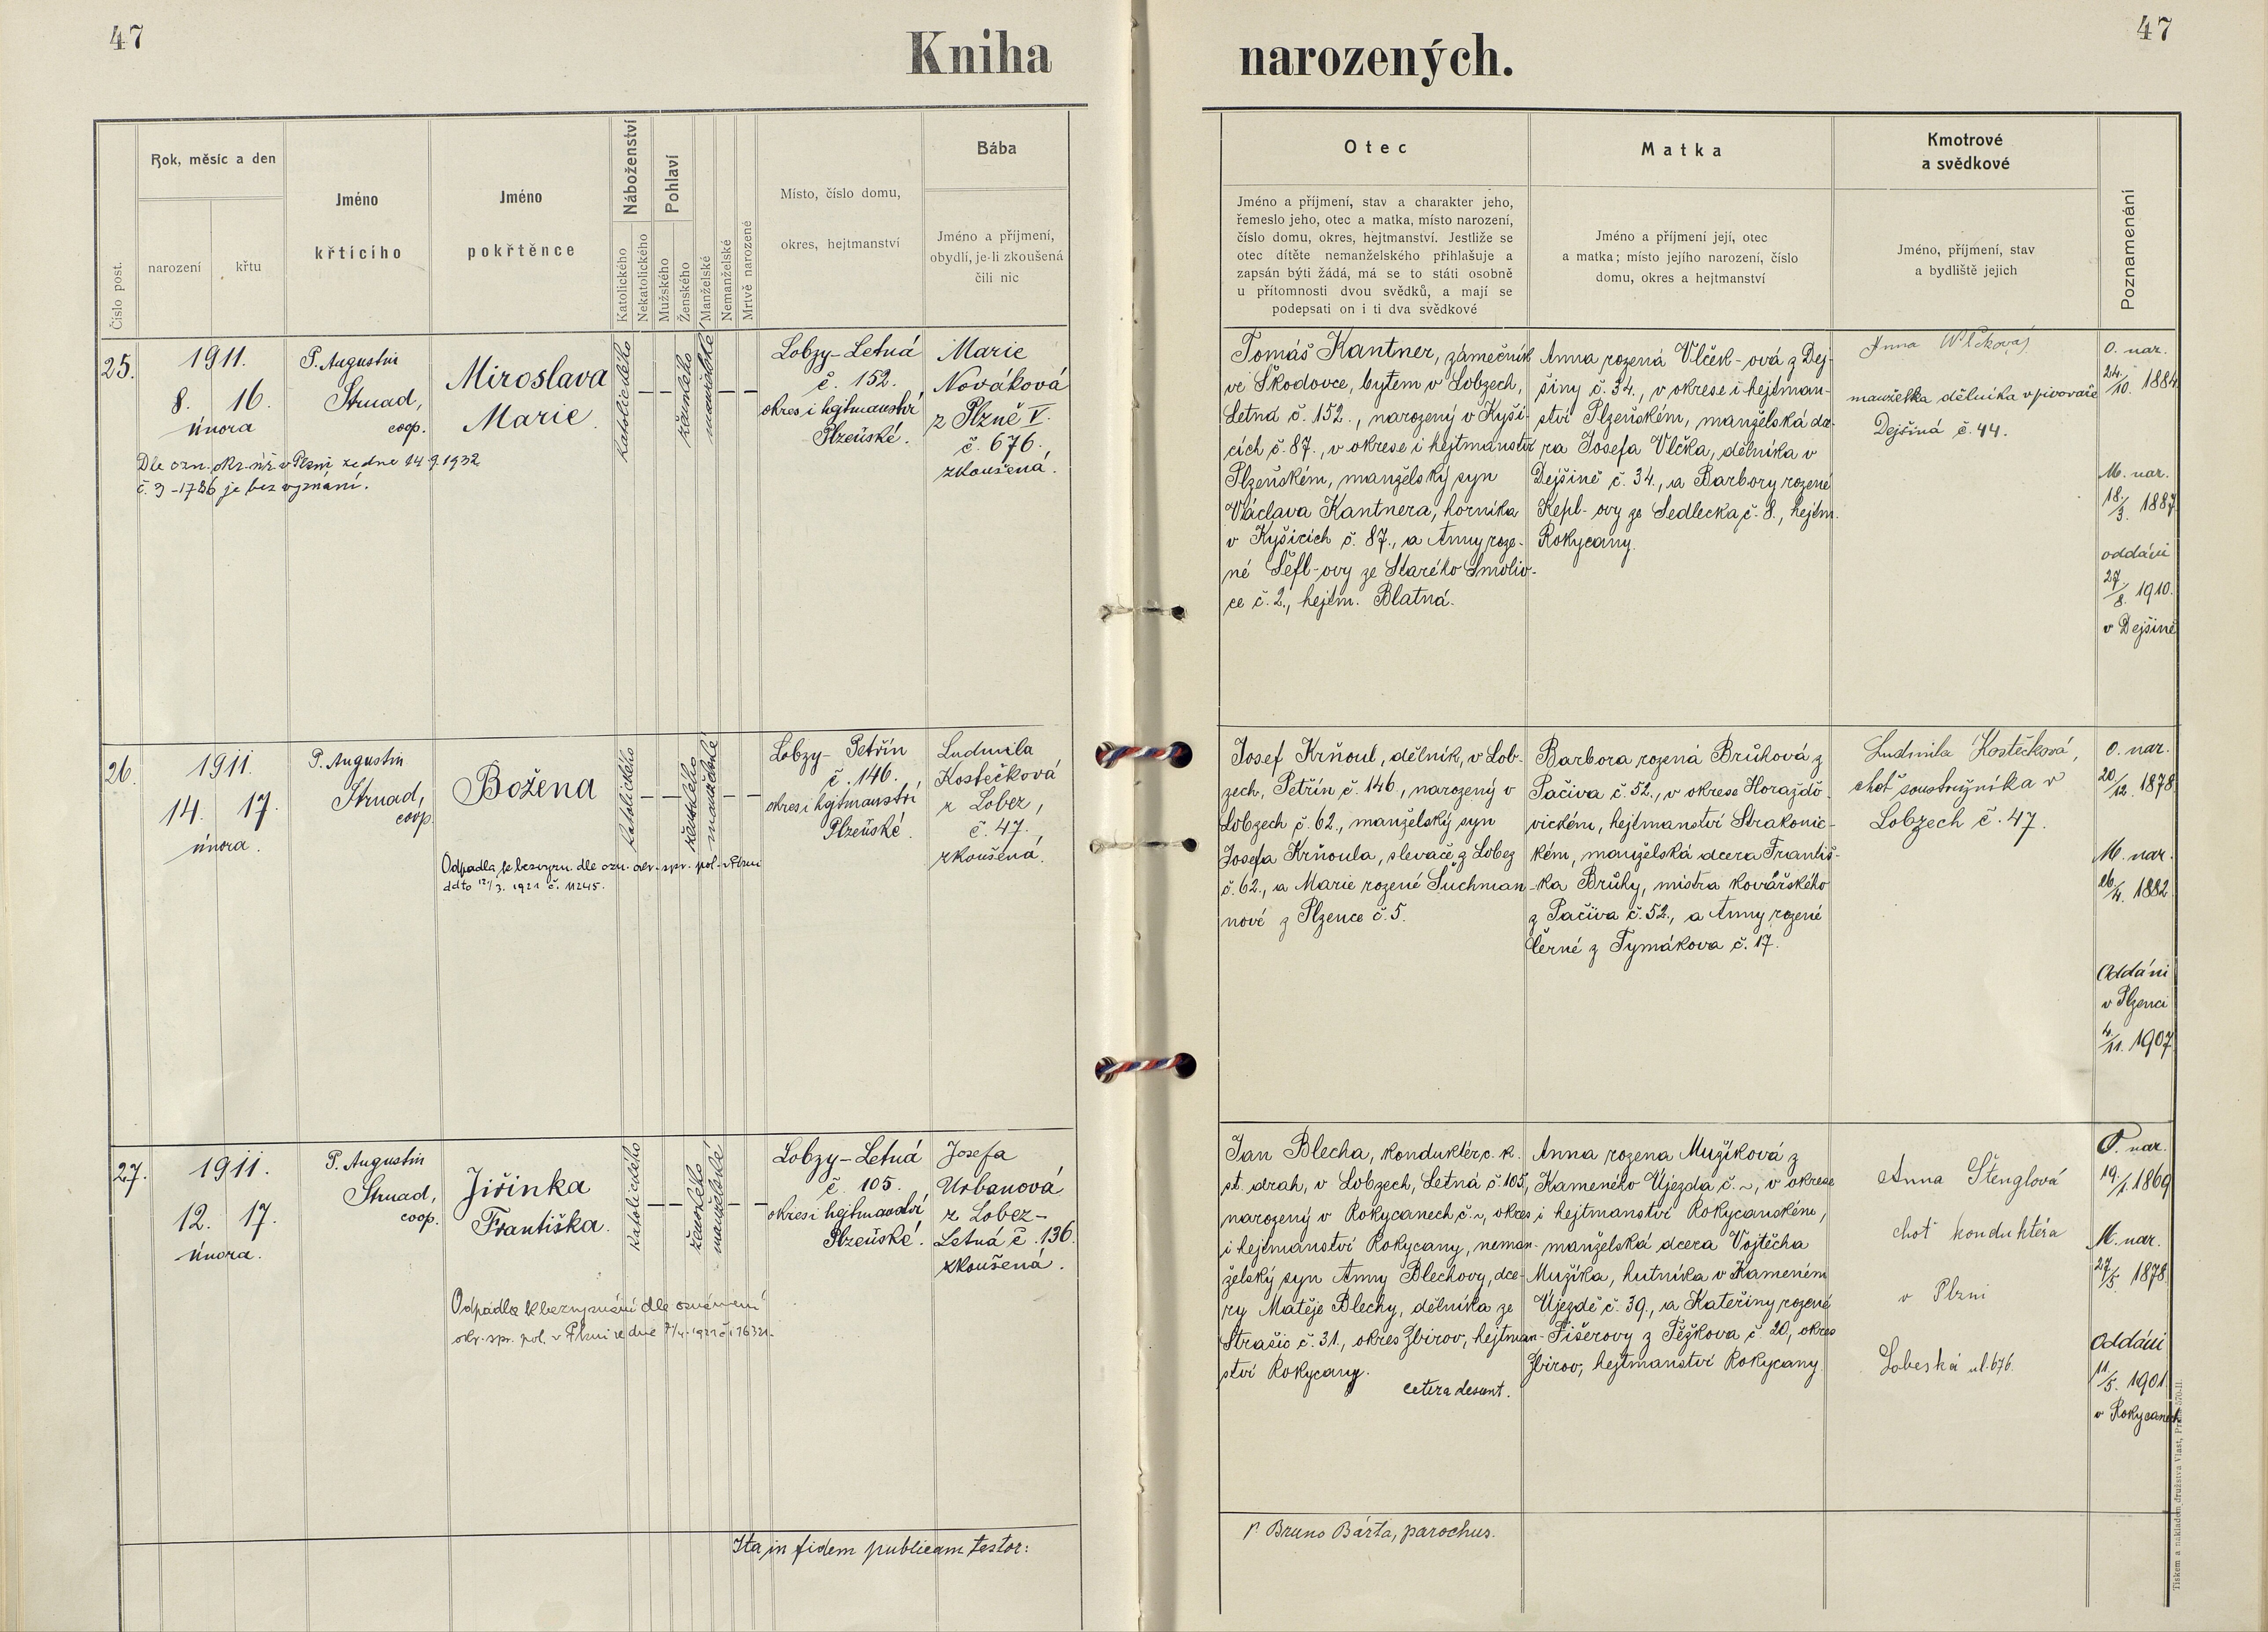 47
Kniha
narozených.
47
Číslo post.
Rok, měsíc a den
narození
křtu
Jméno
křtícího
Jméno
pokřtěnce
Náboženství
Katolického
Nekatolického
Pohlaví
Mužského
Ženského
Manželské
Nemanželské
Mrtvě narozené
Místo, číslo domu,
okres, hejtmanství
Bába
Jméno a příjmení,
obydlí, je-li zkoušená
čili nic
Otec
Jméno a příjmení, stav a charakter jeho,
řemeslo jeho, otec a matka, místo narození,
číslo domu, okres, hejtmanství. Jestliže se
otec dítěte nemanželského přihlašuje a
zapsán býti žádá, má se to státi osobně
u přítomnosti dvou svědků, a mají se
podepsati on i ti dva svědkové
Matka
Jméno a příjmení její, otec
a matka; místo jejího narození, číslo
domu, okres a hejtmanství
Kmotrové
a svědkové
Jméno, příjmení, stav
a bydliště jejich
Poznamenání
25.
1911.
8. 16.
února
P. Augustin
Strnad,
coop.
Miroslava
Marie.
katolického
ženského
manželské
Lobzy-Letná
č. 152.
okres i hejtmanství
Plzeňské.
Marie
Nováková
z Plzně V.
č. 676.
zkoušená.
Dle ozn. okr. úř. v Plzni ze dne 14.9.1932
č. 3-1786 je bez vyznání.
Tomáš Kantner, zámečník
ve Škodovce, bytem v Lobzech,
Letná č. 152., narozený v Kyši-
cích č. 87., v okrese i hejtmanství
Plzeňském, manželský syn
Václava Kantnera, horníka
v Kyšicích č. 87., a Anny roze-
né Šefl-ovy ze Starého Smoliv-
ce č. 2., hejtm. Blatná.
Anna rozená Vlček-ová z Dej-
šiny č. 34., v okrese i hejtman-
ství Plzeňském, manželská dce-
ra Josefa Vlčka, dělníka v
Dejšině č. 34., a Barbory rozené
Kepl-ovy ze Sedlecka č. 8., hejtm.
Rokycany.
Anna Vlčková,
manželka dělníka v pivovaře
Dejšiná č. 44.
O. nar.
24./10. 1884.
M. nar.
18./3. 1887.
oddáni
27./8. 1910.
v Dejšině
26.
1911.
14. 17.
února.
P. Augustin
Strnad,
coop.
Božena
katolického
ženského
manželské
Lobzy-Petřín
č. 146.
okres i hejtmanství
Plzeňské.
Ludmila
Kostečková
z Lobez,
č. 47.
zkoušená.
Odpadla k bezvyzn. dle ozn. okr. spr. pol. v Plzni
ddto 12/3. 1921 č. 11245.
Josef Krňoul, dělník, v Lob-
zech, Petřín č. 146., narozený v
Lobzech č. 62., manželský syn
Josefa Krňoula, slevače z Lobez
č. 62., a Marie rozené Suchman-
nové z Plzence č. 5.
Barbora rozená Brůhová z
Pačiva č. 52., v okrese Horažďo-
vickém, hejtmanství Strakonic-
kém, manželská dcera Františ-
ka Brůhy, mistra kovářského
z Pačiva č. 52., a Anny rozené
Černé z Tymákova č. 17.
Ludmila Kostečková,
choť soustružníka v
Lobzech č. 47.
O. nar.
20./12. 1878.
M. nar.
26./4. 1882.
Oddáni
v Plzenci
4./11. 1907.
27.
1911.
12. 17.
února.
P. Augustin
Strnad,
coop.
Jiřinka
Františka.
katolického
ženského
manželské
Lobzy-Letná
č. 105.
okres i hejtmanství
Plzeňské.
Josefa
Urbanová
z Lobez-
Letná č. 136.
zkoušená.
Odpadla k bezvyznání dle oznámení
okr. spr. pol. v Plzni ze dne 7/4. 1921 č. 16321.
Jan Blecha, konduktér c. k.
st. drah, v Lobzech, Letná č. 105.,
narozený v Rokycanech č. ~, okres
i hejtmanství Rokycany, neman-
želský syn Anny Blechovy, dce-
ry Matěje Blechy, dělníka ze
Strašic č. 31., okres Zbirov, hejtman-
ství Rokycany.
cetera desunt.
Anna rozená Mužíková z
Kameného Újezda č. ~, v okrese
i hejtmanství Rokycanském,
manželská dcera Vojtěcha
Mužíka, hutníka v Kameném
Újezdě č. 39., a Kateřiny rozené
Fišerovy z Těžkova č. 20, okres
Zbirov, hejtmanství Rokycany.
Anna Štenglová
choť konduktéra
v Plzni
Lobeská ul. 676.
O. nar.
19./1. 1869
M. nar.
27./5. 1878.
Oddáni
11./5. 1901.
v Rokycanech
Ita in fidem publicam testor:
P. Bruno Bárta, parochus.
Tiskem a nákladem družstva Vlast, Praha 570-II.